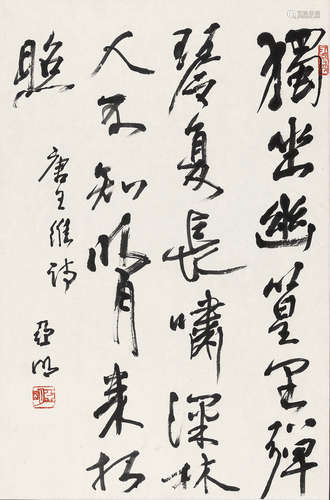 獨坐幽篁里彈
琴复長嘯深林
人不知明月来相
照
唐王維詩
亞明